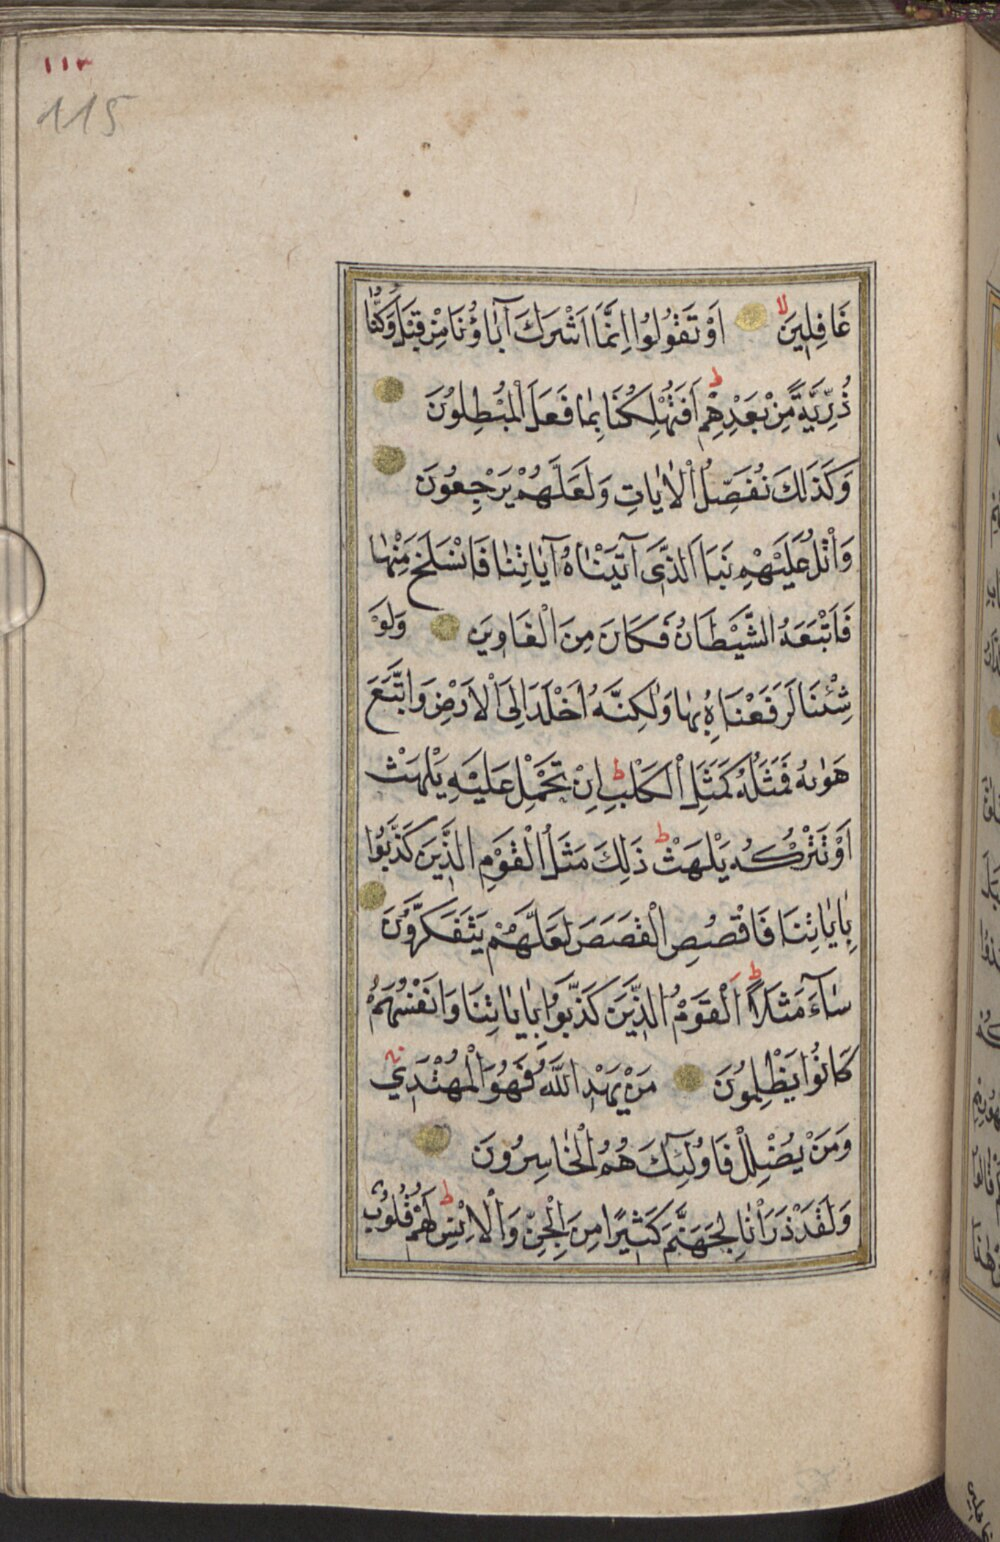 ١١٣
115
غَافِلِينَ لا اَوْ تَقُولُوا اِنَّمَا اَشْرَكَ آبَاؤُنَا مِنْ قَبْلُ وَكُنَّا
ذُرِّيَّةً مِنْ بَعْدِهِمْ ط اَفَتُهْلِكُنَا بِمَا فَعَلَ الْمُبْطِلُونَ
وَكَذَلِكَ نُفَصِّلُ الْاٰيَاتِ وَلَعَلَّهُمْ يَرْجِعُونَ
وَاتْلُ عَلَيْهِمْ نَبَاَ الَّذَٓى آتَيْنَاهُ آيَاتِنَا فَانْسَلَخَ مِنْهَا
فَاَتْبَعَهُ الشَّيْطَانُ فَكَانَ مِنَ الْغَاوِينَ وَلَوْ
شِئْنَا لَرَفَعْنَاهُ بِهَا وَلٰكِنَّهُ اَخْلَدَ اِلَى الْاَرْضِ وَاتَّبَعَ
هَوٰيهُ فَمَثَلُهُ كَمَثَلِ الْكَلْبِ ط اِنْ تَحْمِلْ عَلَيْهِ يَلْهَثْ
اَوْ تَتْرُكْهُ يَلْهَثْ ط ذَلِكَ مَثَلُ الْقَوْمِ الَّذِينَ كَذَّبُوا
بِاٰيَاتِنَا فَاقْصُصِ الْقَصَصَ لَعَلَّهُمْ يَتَفَكَّرُونَ
سَٓاءَ مَثَلًا ط اَلْقَوْمُ الَّذِينَ كَذَّبُوا بِاٰيَاتِنَا وَاَنْفُسَهُمْ
كَانُوا يَظْلِمُونَ مَنْ يَهْدِ اللَّهُ فَهُوَ الْمُهْتَدِي
وَمَنْ يُضْلِلْ فَاُولَٓئِكَ هُمُ الْخَاسِرُونَ
وَلَقَدْ ذَرَاْنَا لِجَهَنَّمَ كَثِيرًا مِنَ الْجِنِّ وَالْاِنْسِ ط لَهُمْ قُلُوبٌ